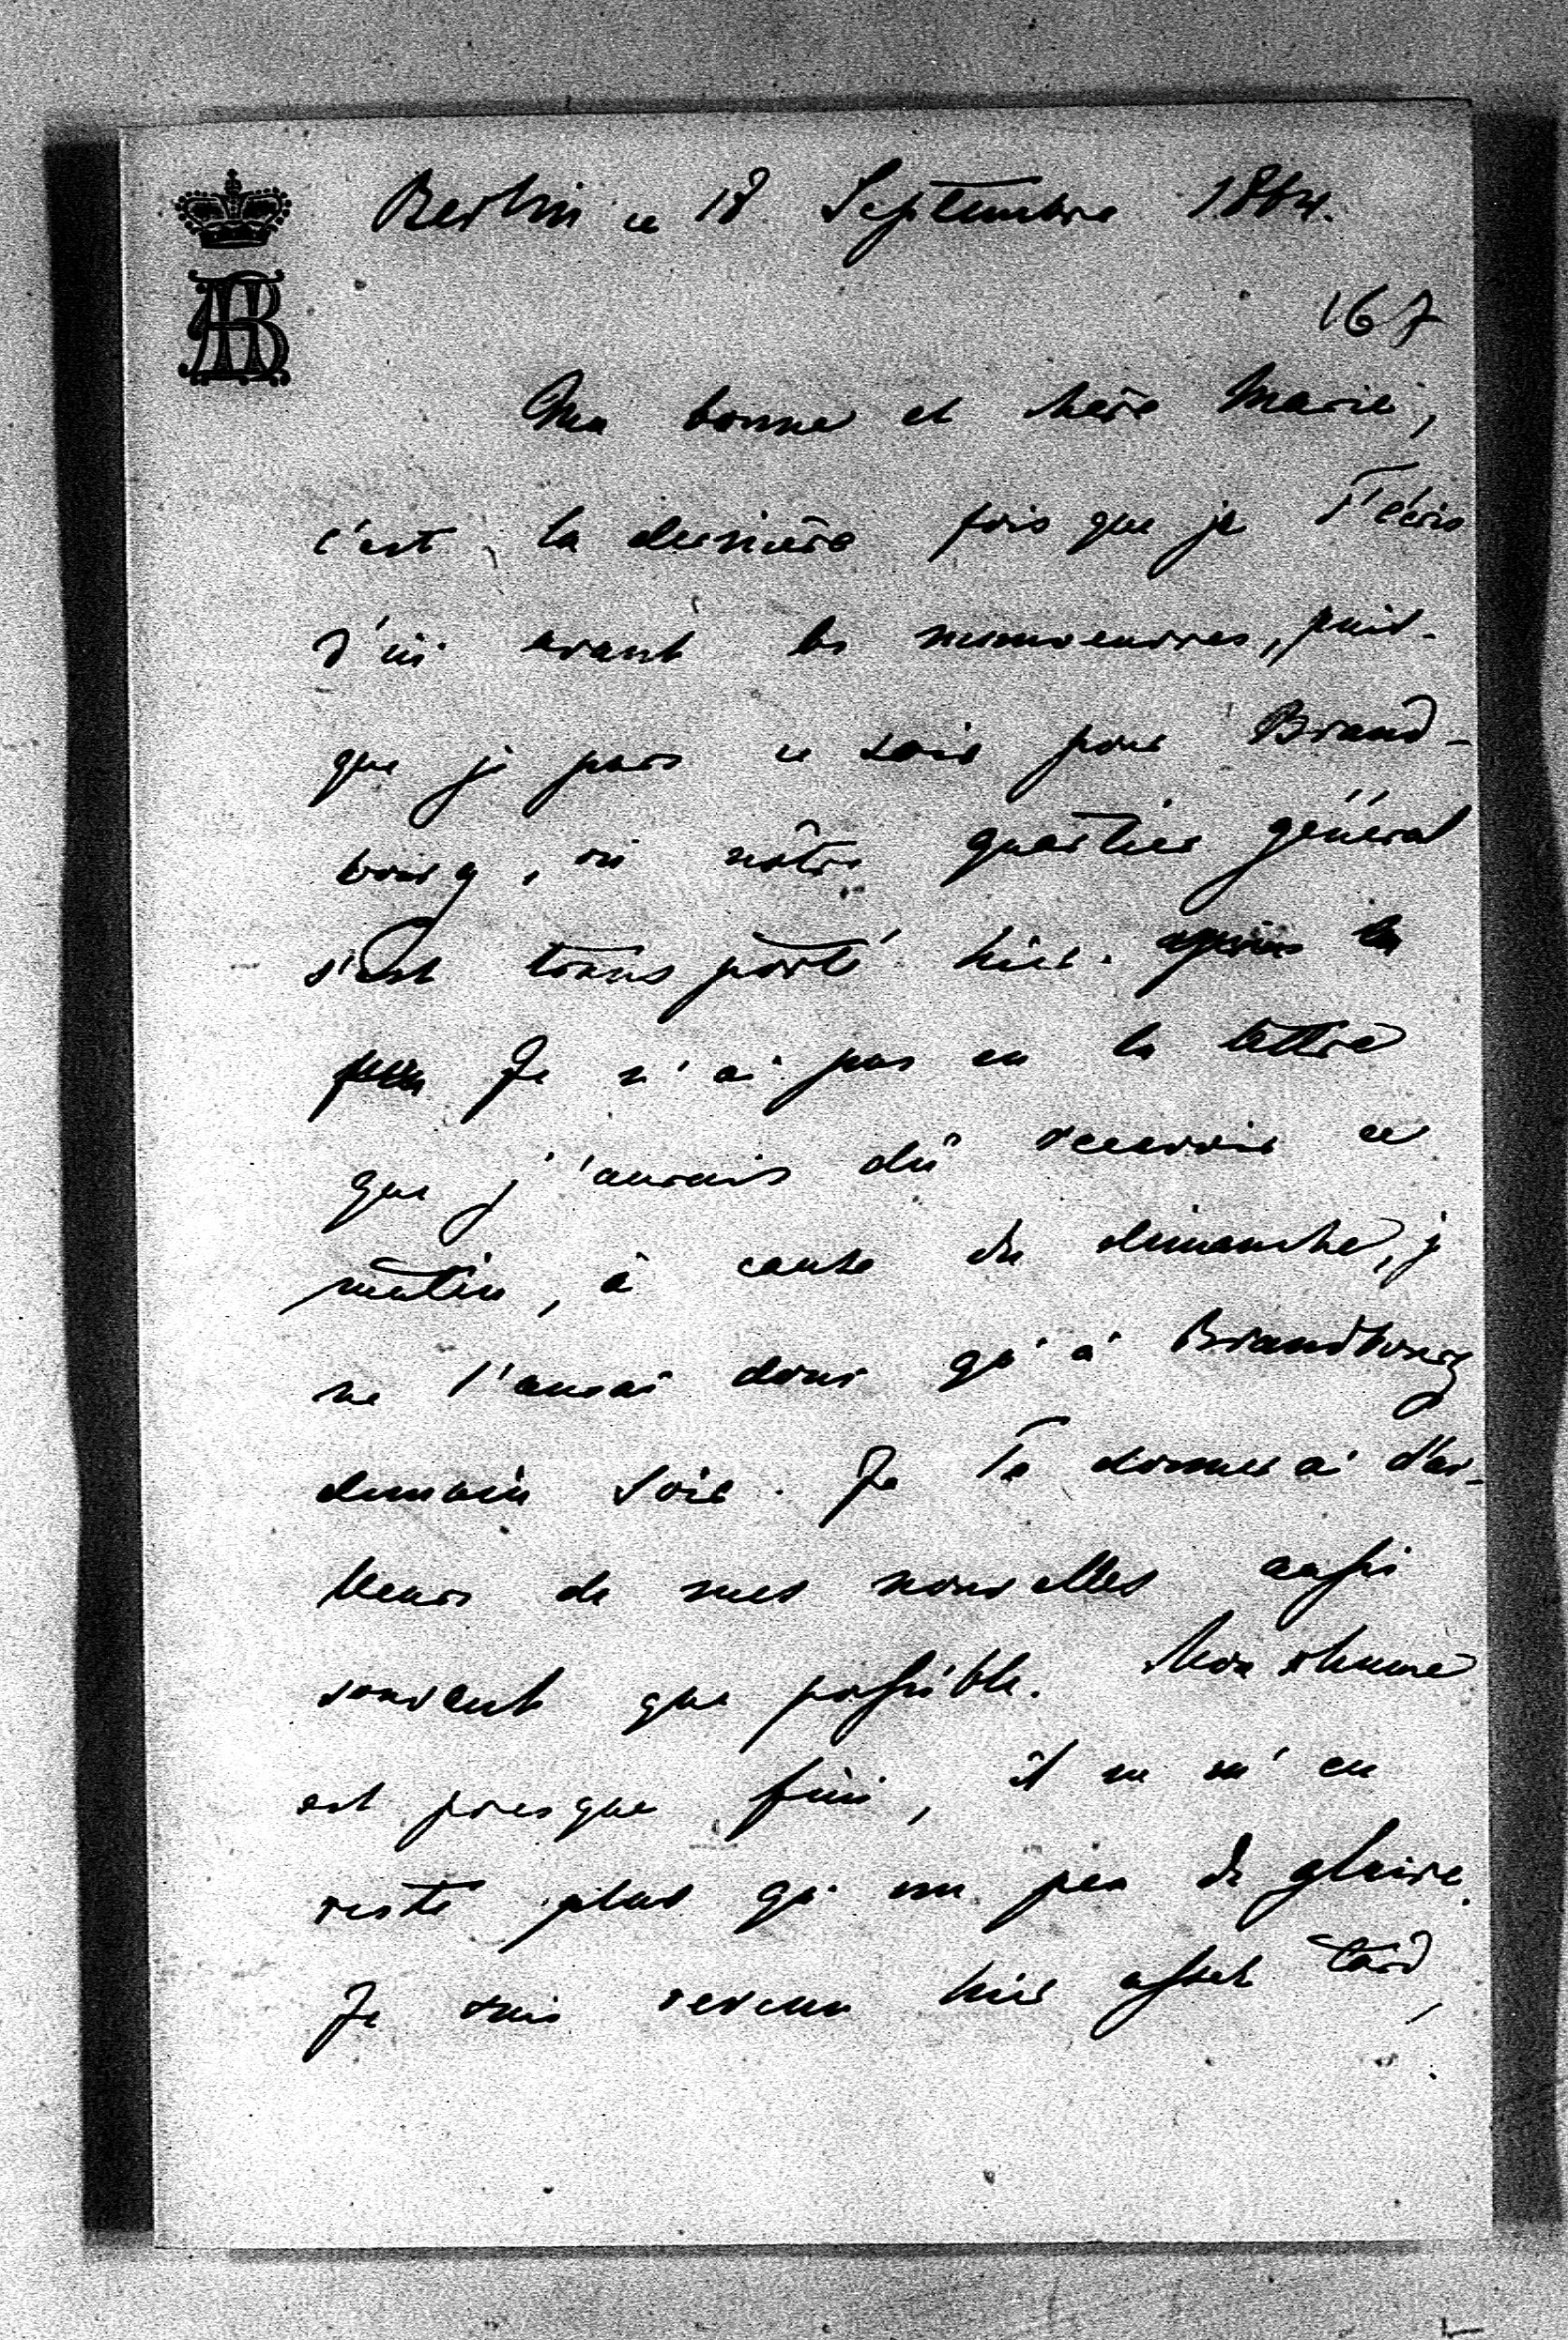 AB
Berlin ce 18 Septembre 1864.
167
Ma bonne et chère Marie,
c'est la dernière fois que je T'écris
d'ici avant les manoeuvres, puis-
que je pars ce soir pour Brand-
bourg, où nôtre quartier général
s'est transporté hier. après la
Je n'ai pas eu la lettre
que j'aurais dû recevoir ce
matin, à cause du dimanche, je
ne l'aurai donc qu'à Brandbourg
demain soir. Je Te donnerai d'ai-
lleurs de mes nouvelles aussi
souvent que possible. Mon rhume
est presque fini, il ne m'en
reste plus qu'un peu de glaire.
Je suis revenu hier assez tard,